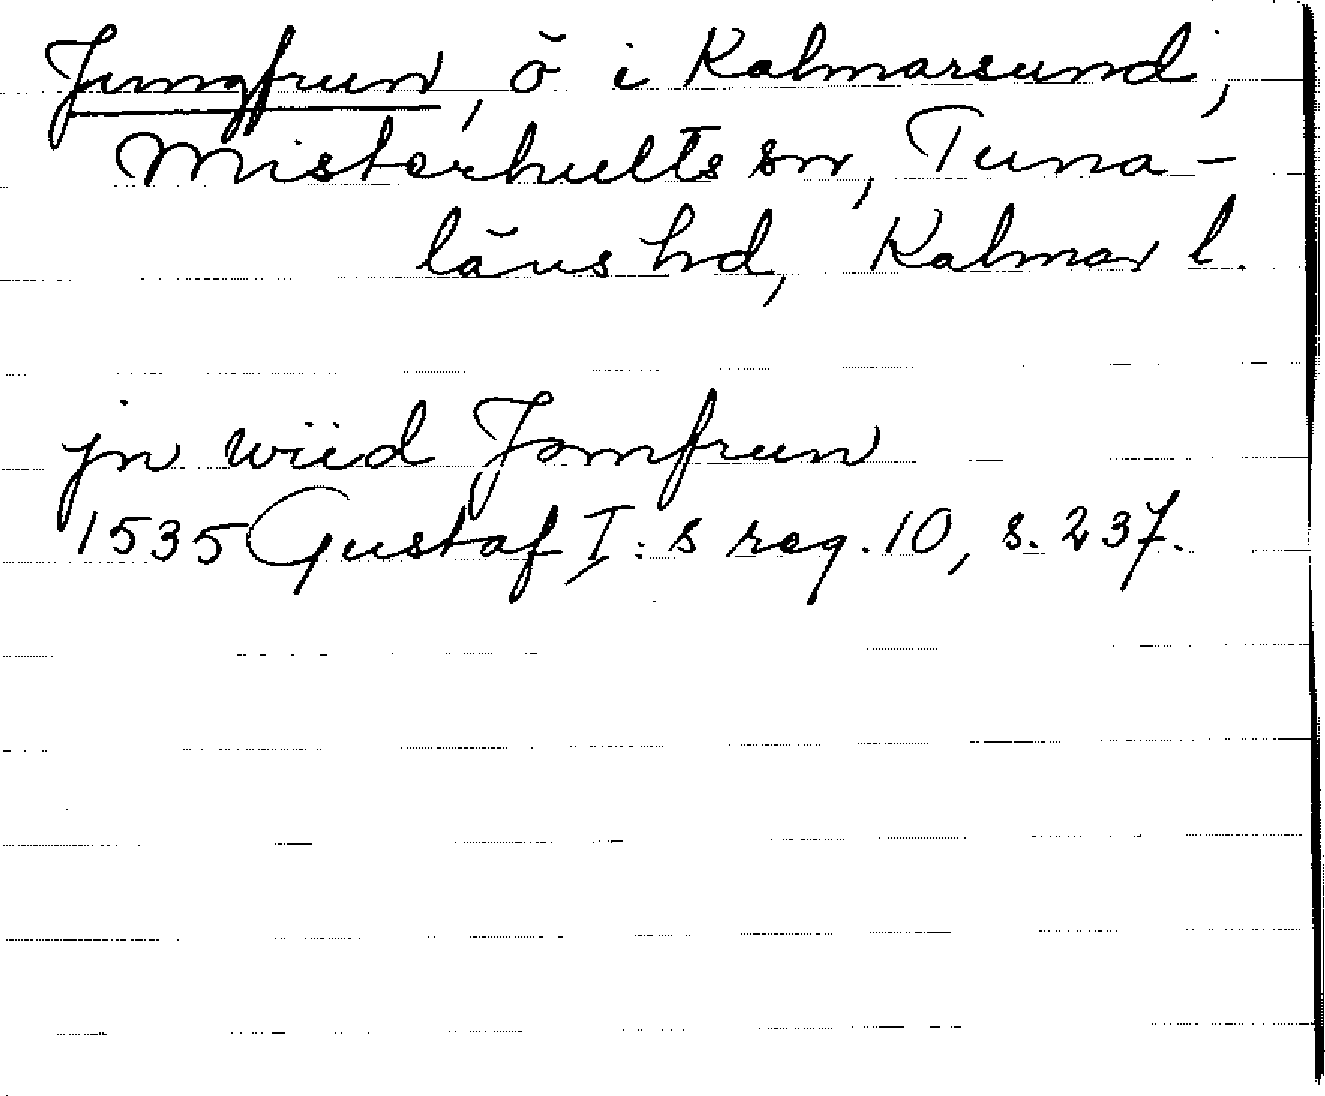 Jungfrun, ö i Kalmarsund,
Misterhults sn, Tuna-
läns hd, Kalmar l.
jn wiid Jomfrun
1535 Gustaf I:s reg. 10, s. 237.